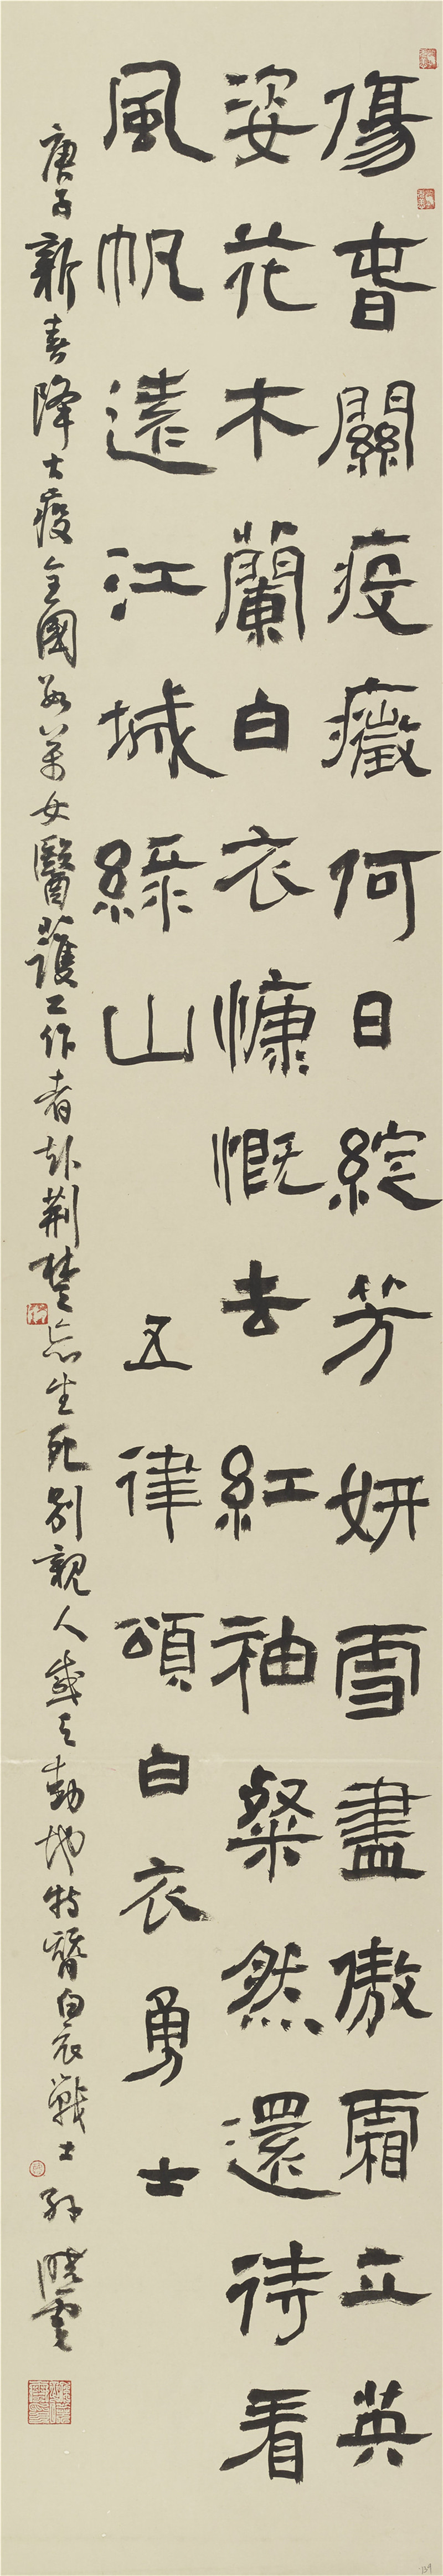 傷春關疫癥何日綻芳妍雪盡傲霜立英
姿花木蘭白衣慷慨去紅袖粲然還待看
風帆遠江城綠山 五律頌白衣勇士
庚子新春降大疫全國數萬女醫護工作者赴荆楚忘生死别親人感天動地特贊白衣戰士 孫曉雲